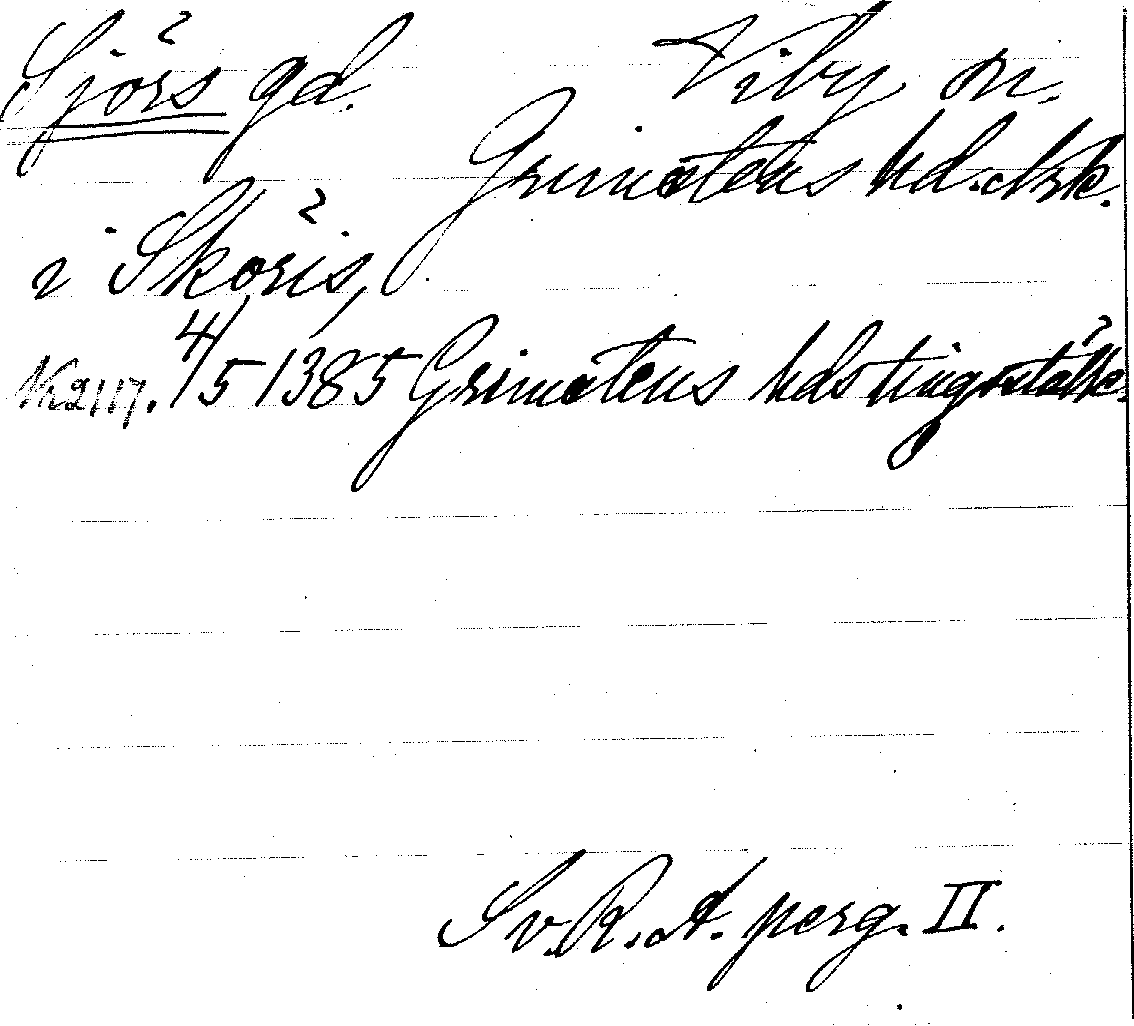 Sjörs gd. Viby sn.
Grimstens hd. Nrk.
i Sköris,
Nr 2117. 4/5 1385 Grimstens hds tingsställe.
Sv. R. A. perg. II.